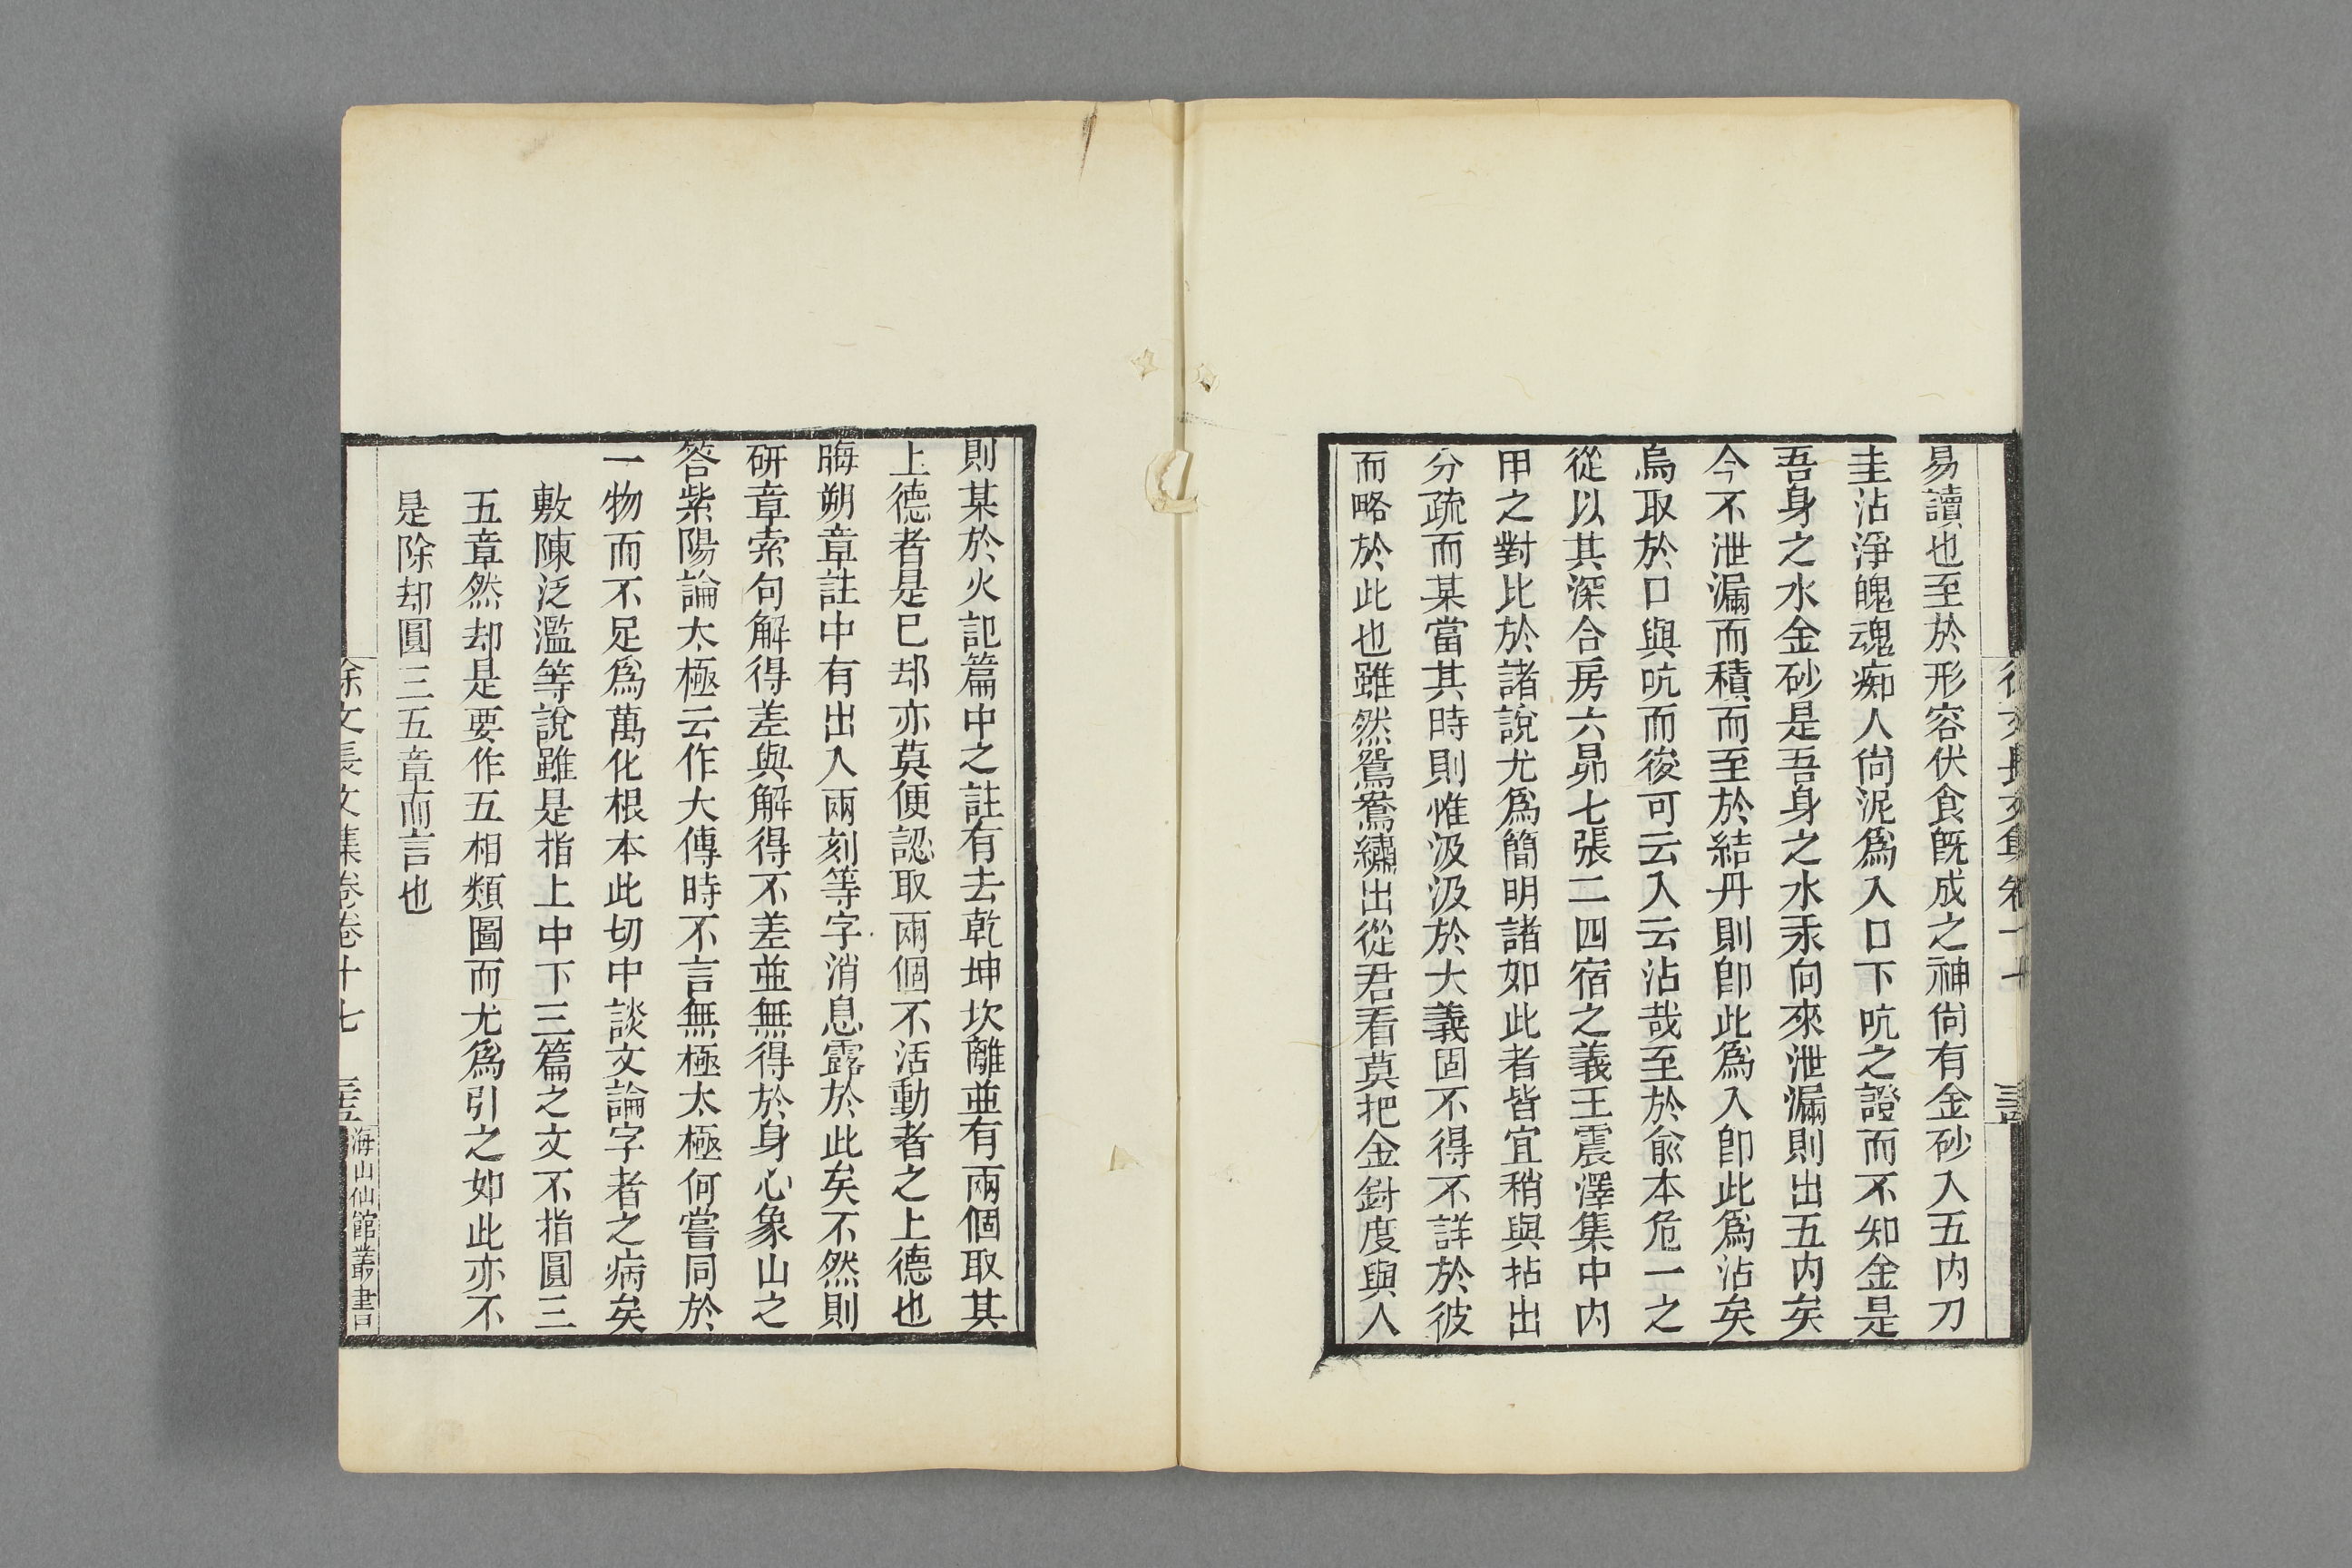 易讀也至於形容伏食旣成之神尙有金砂入五内刀
圭沾淨魄魂痴人尙泥爲入口下吭之證而不知金是
吾身之水金砂是吾身之水汞向來泄漏則出五内矣
今不泄漏而積而至於結丹則卽此爲入卽此爲沾矣
烏取於口與吭而後可云入云沾哉至於兪本危一之
從以其深合房六昴七張二四宿之義王震澤集中内
甲之對比於諸說尤爲簡明諸如此者皆宜稍與拈出
分疏而某當其時則惟汲汲於大義固不得不詳於彼
而略於此也雖然鴛鴦繡出從君看莫把金針度與人
則某於火記篇中之註有去乾坤坎離並有兩個取其
上德者是已却亦莫便認取兩個不活動者之上德也
晦朔章註中有出入兩刻等字消息露於此矣不然則
研章索句解得差與解得不差並無得於身心象山之
答紫陽論太極云作大傳時不言無極太極何嘗同於
一物而不足爲萬化根本此切中談文論字者之病矣
敷陳泛濫等說雖是指上中下三篇之文不指圓三
五章然却是要作五相類圖而尤爲引之如此亦不
是除却圓三五章而言也
徐文長文集卷卷十七
海山仙館叢書